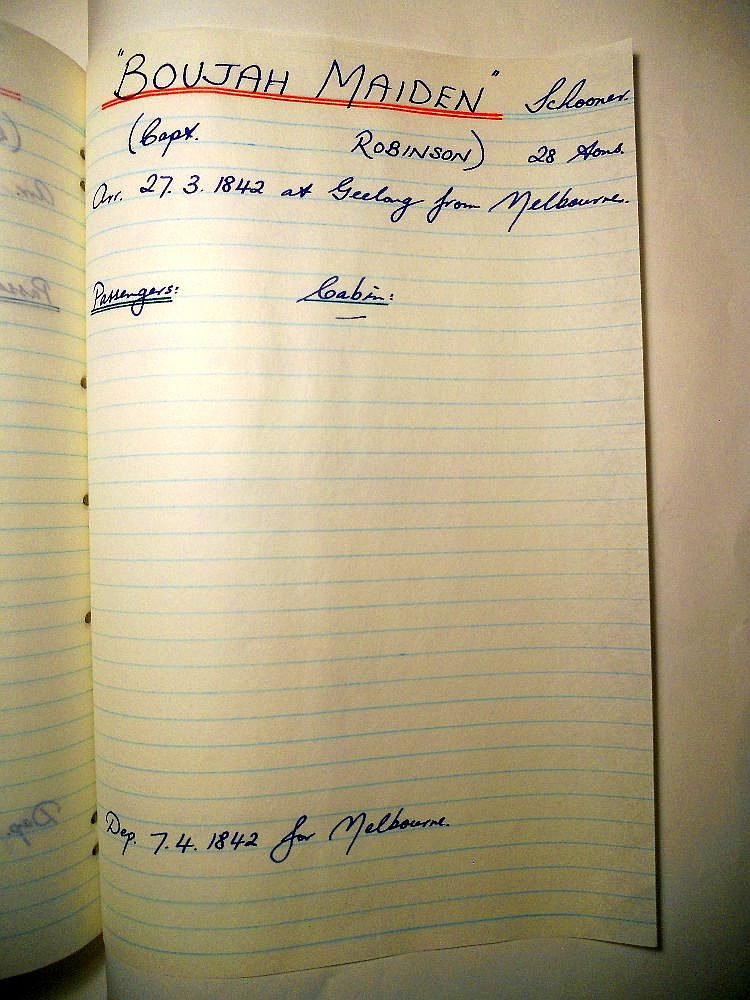 "BOUJAH MAIDEN" Schooner.
(Capt. ROBINSON) 28 tons.
Arr. 27. 3. 1842 at Geelong from Melbourne.
Passengers: Cabin:
—
Dep. 7. 4. 1842 for Melbourne.